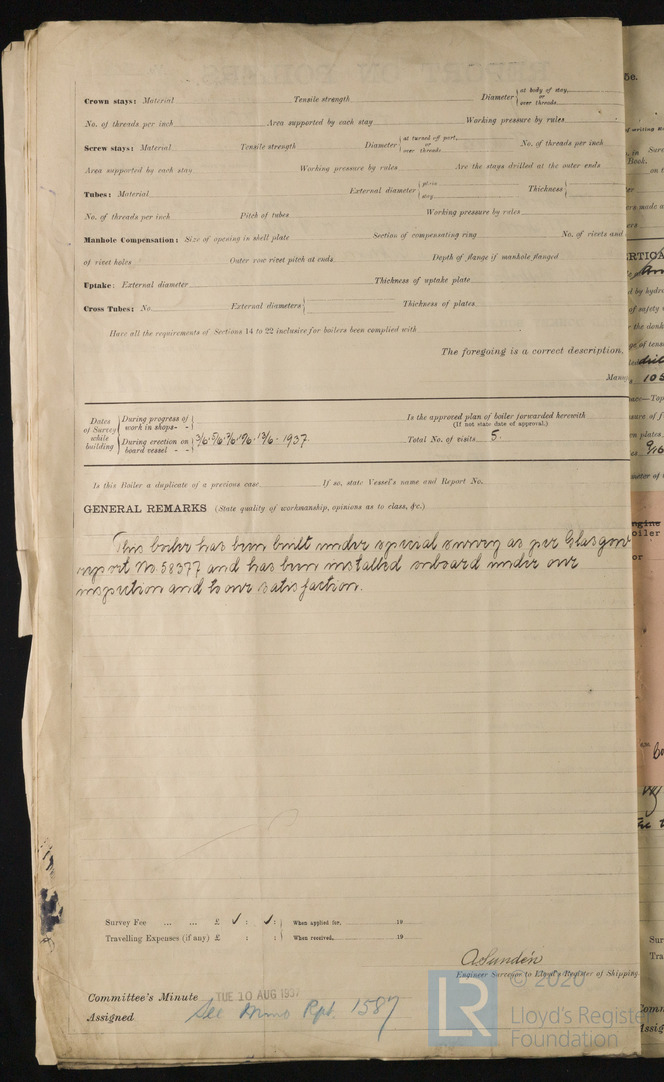 Crown stays: Material Tensile strength Diameter { at body of stay, or over threads
No. of threads per inch Area supported by each stay Working pressure by rules
Screw stays: Material Tensile strength Diameter { at turned off part, or over threads No. of threads per inch
Area supported by each stay Working pressure by rules Are the stays drilled at the outer ends
Tubes: Material External diameter { plain stay Thickness {
No. of threads per inch Pitch of tubes Working pressure by rules
Manhole Compensation: Size of opening in shell plate Section of compensating ring No. of rivets and
of rivet holes Outer row rivet pitch at ends Depth of flange if manhole flanged
Uptake: External diameter Thickness of uptake plate
Cross Tubes: No. External diameters { Thickness of plates
Have all the requirements of Sections 14 to 22 inclusive for boilers been complied with
The foregoing is a correct description,
Dates of Survey while building
During progress of work in shops - -
During erection on board vessel - - 3/6. 5/6. 1937.
Is the approved plan of boiler forwarded herewith
(If not state date of approval.)
Total No. of visits 5.
Is this Boiler a duplicate of a previous case If so, state Vessel's name and Report No.
GENERAL REMARKS (State quality of workmanship, opinions as to class, &c.)
This boiler has been built under special survey as per Glasgow
report No. 58377 and has been installed onboard under our
inspection and to our satisfaction.
Survey Fee ... ... £ ✓ : ✓ : When applied for, 19
Travelling Expenses (if any) £ : : When received, 19
A Sundén
Engineer Surveyor to Lloyd's Register of Shipping.
Committee's Minute TUE 10 AUG 1937
Assigned See Memo Rpt. 1587
© 2020
LR Lloyd's Register
Foundation